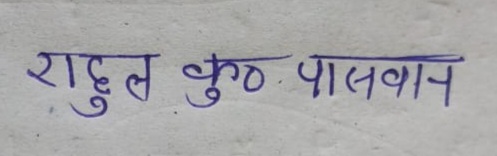 राहुल कु० पासवान